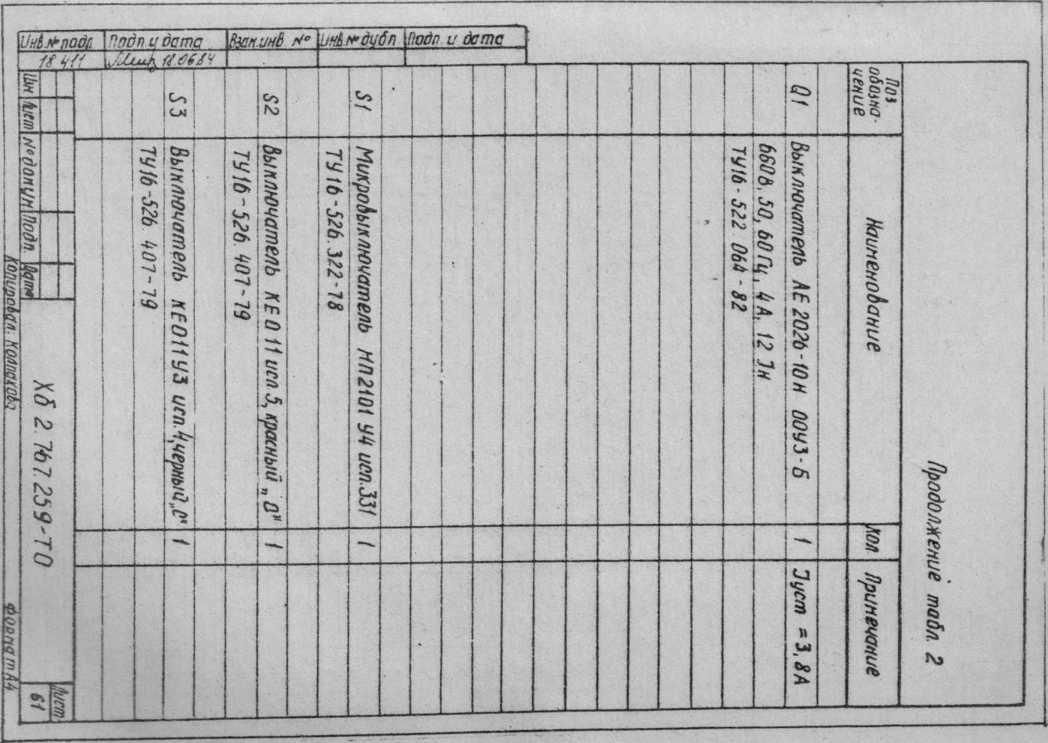 Продолжение табл. 2
Поз. обозна- чение
Наименование
Кол
Примечание
Q1 Выключатель АЕ 2026-10Н 00У3-Б 1 Iуст =3,8А
660В, 50, 60 Гц, 4 А, 12 Iн
ТУ16-522 064-82
S1 Микровыключатель МП2101 У4 исп.331 1
ТУ16-526.322-78
S2 Выключатель КЕ 011 исп 5, красный „0" 1
ТУ16-526 407-79
S3 Выключатель КЕ011У3 исп.4,черный„С" 1
ТУ16-526 407-79
Инв.№ подл Подп и дата Взам.инв № Инв.№ дубл Подп и дата
18 411 18.06.84
Лист № докум Подп. Дата
Хб 2.767.259-ТО
Лист
61
Копировал. Колпакова
Формат А4